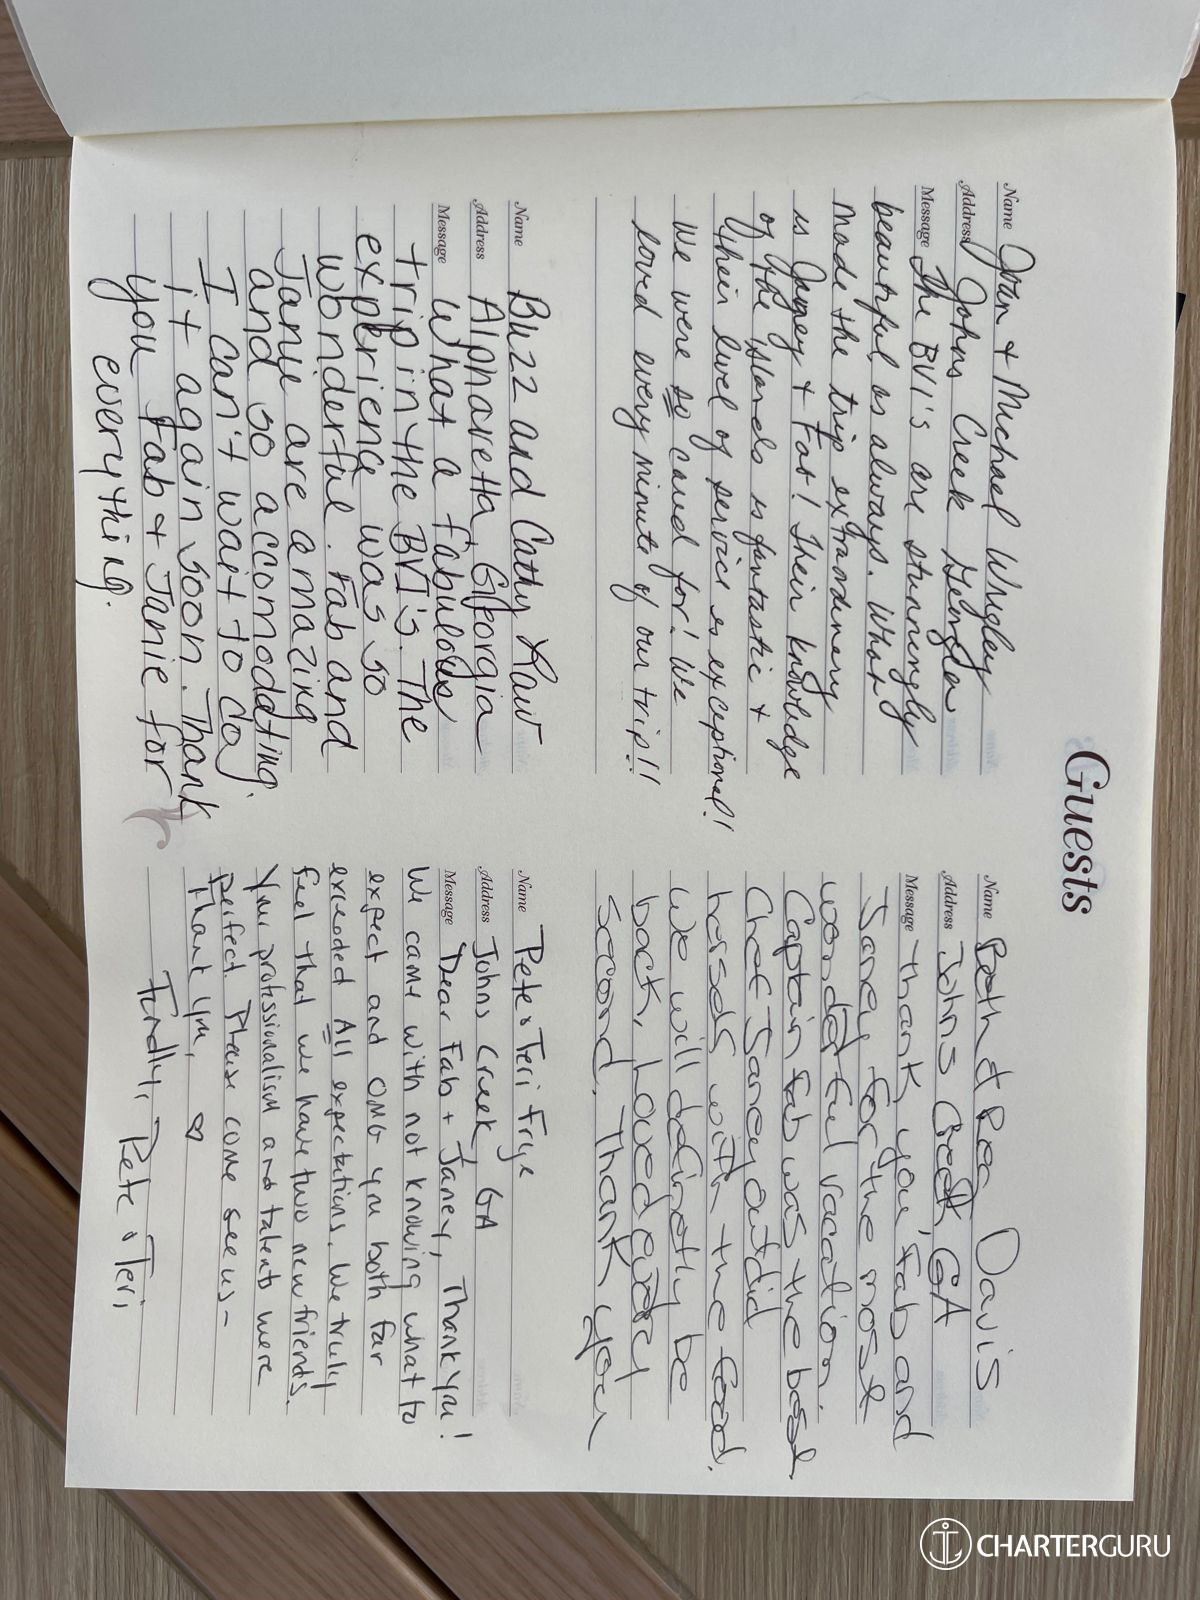 Guests
Name Joan & Michael Wrigley
Address Johns Creek Georgia
Message The BVI's are stunningly
beautiful as always. What
made the trip extraordinary
is Janey & Fab! Their knowledge
of the islands is fantastic &
their level of service is exceptional!!
We were so cared for! We
loved every minute of our trip!!
Name Beth & Reg Davis
Address Johns Creek, GA
Message Thank you, Fab and
Janey for the most
wonderful vacation.
Captain Fab was the best.
Chef Janey outdid
herself with the food.
We will definetly be
back. Loved every
second. Thank you
Name Buzz and Cathy Law
Address Alpharetta, Georgia
Message What a fabulous
trip in the BVI's. The
experience was so
wonderful. Fab and
Janie are amazing
and so accomodating.
I can't wait to do
it again soon. Thank
you Fab & Janie for
everything.
Name Pete & Teri Frye
Address Johns Creek, GA
Message Dear Fab & Janey, Thank you!
We came with not knowing what to
expect and OMG you both far
exceeded All expectations. We truly
feel that we have two new friends.
Your professionalism and talents were
perfect. Please come see us-
Thank you,
Fondly, Pete & Teri
CHARTERGURU